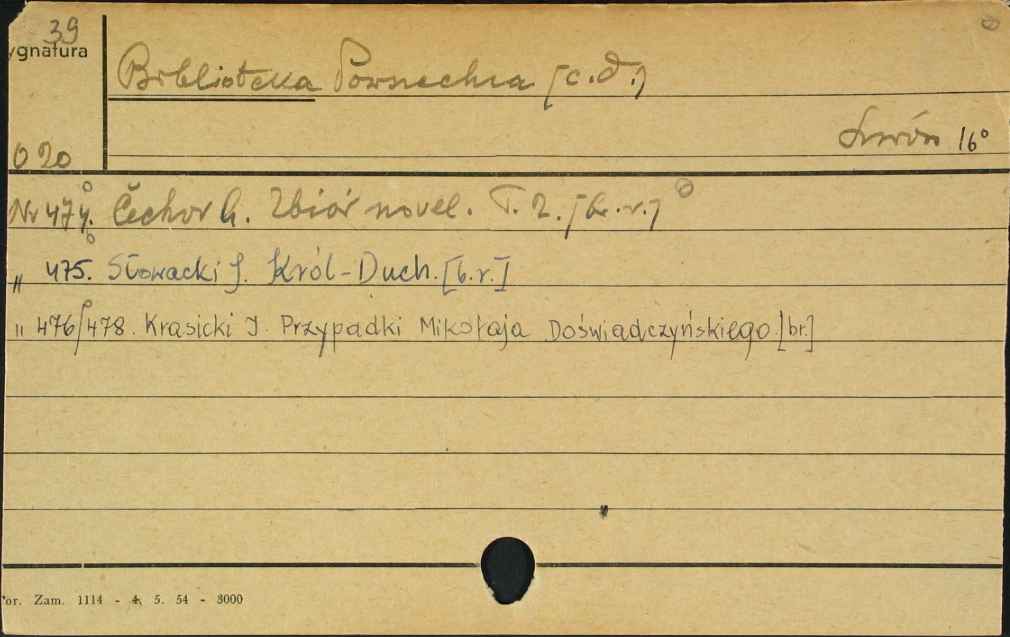 39
ygnatura
Biblioteka Powszechna [c.d.]
Lwów 16°
O 20
Nr 474. Čechov A. Zbiór novel. T. 2. [b.r.]
„ 475. Słowacki J. Król-Duch. [b.r.]
„ 476/478. Krasicki I. Przypadki Mikołaja Doświadczyńskiego [br.]
or. Zam. 1114 - 4. 5. 54 - 3000